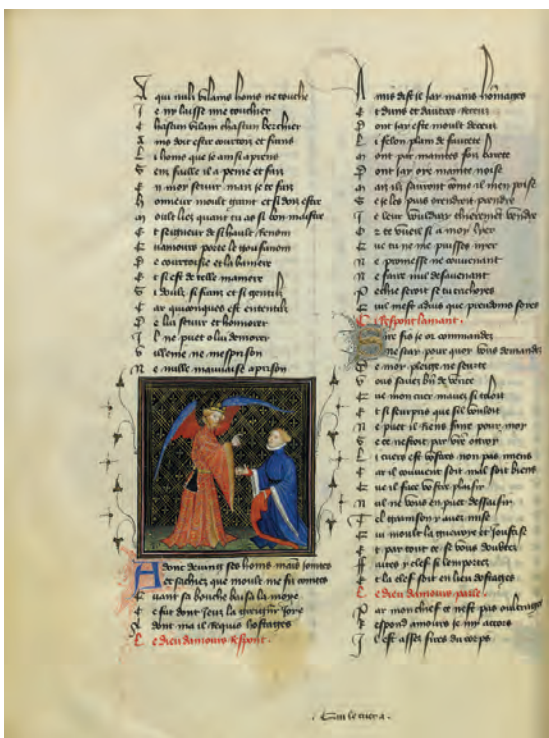 A qui nulz vilains homs ne touche
J e ny laisse mie touchier
C hascun vilain chascun berchier
A ins doit estre courtois et frans
L i homs que je ainsi aprens
S ens faille il a peine et fais
E n moy servir mais je te fais
H onneur moult grant et si dois estre
M oult liez quant tu as si bon maistre
E t seigneur de si hault renom
C amours porte le gonfanon
D e courtoisie et la baniere
E t si est de telle maniere
S i doulz si franc et si gentilz
C ar quiconques est ententilz
D e lui servir et honnorer
I l ne puet o lui demorer
V illenie ne mesprison
N e nulle mauvaise aprison
A donc deving ses homs mains jointes
et sachiez que moult me fis cointes
Quant sa bouche baisa la moye
C e fut dont jeuz la greigneur joye
A dont ma il requis hostages
L e dieu damours respont.
A mis dist il jay mains hommages
E t duns et dautres receus
D ont jay este moult deceuz
L i felon plain de faucete
M ont par maintes fois barete
D ont jay ore mainte noise
M ais ilz sauront come il men poise
S e je les puis orendroit prendre
J e leur vouldray chierement vendre
O r te vueil si a moy lyer
Q ue tu ne me puisses nyer
N e promesse ne convenant
N e faire nul desavenant
P echie seroit se tu trichoyes
Q uil mest advis que preudoms soyes
C i respont lamant.
S ire fis je or commandez
N e scay pour quoy vous demandez
D e moy pleige ne seurte
V ous savez bien de verite
Q ue mon cuer mavez si toloit
E t si seurpris que sil vouloit
N e puet il riens faire pour moy
S e ce nestoit par vostre ottroy
L i cuers est vostres non pas miens
C ar il couvient soit mal soit biens
Q ue il face vostre plaisir
N ul ne vous en puet dessaisir
T el garnison y avez mise
Q ui moult la guerroye et joustise
E t par tout ce se vous doubtez
F aites y clef si lemportez
E t la clef soit en lieu dostages
L e dieu damours parle.
P ar mon chief ce nest pas oultrages
R espond amours je my accors
I l est assez sires du corps
Qui le cuer a.